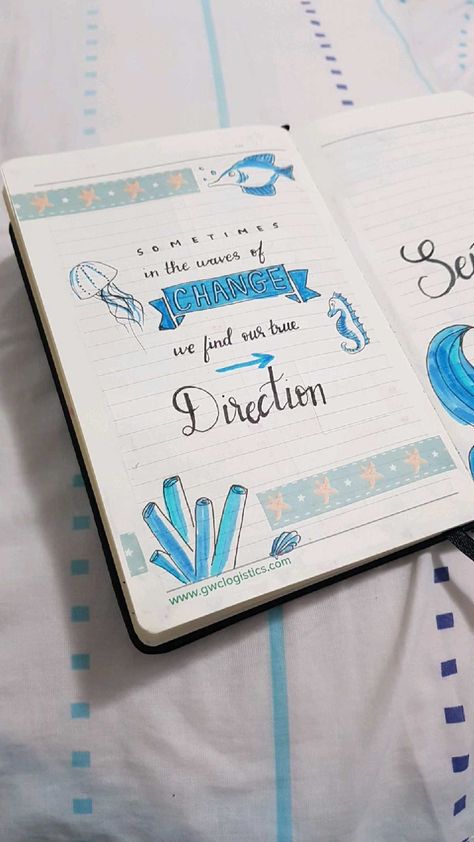 SOMETIMES
in the waves of
CHANGE
we find our true
Direction
www.gwclogistics.com